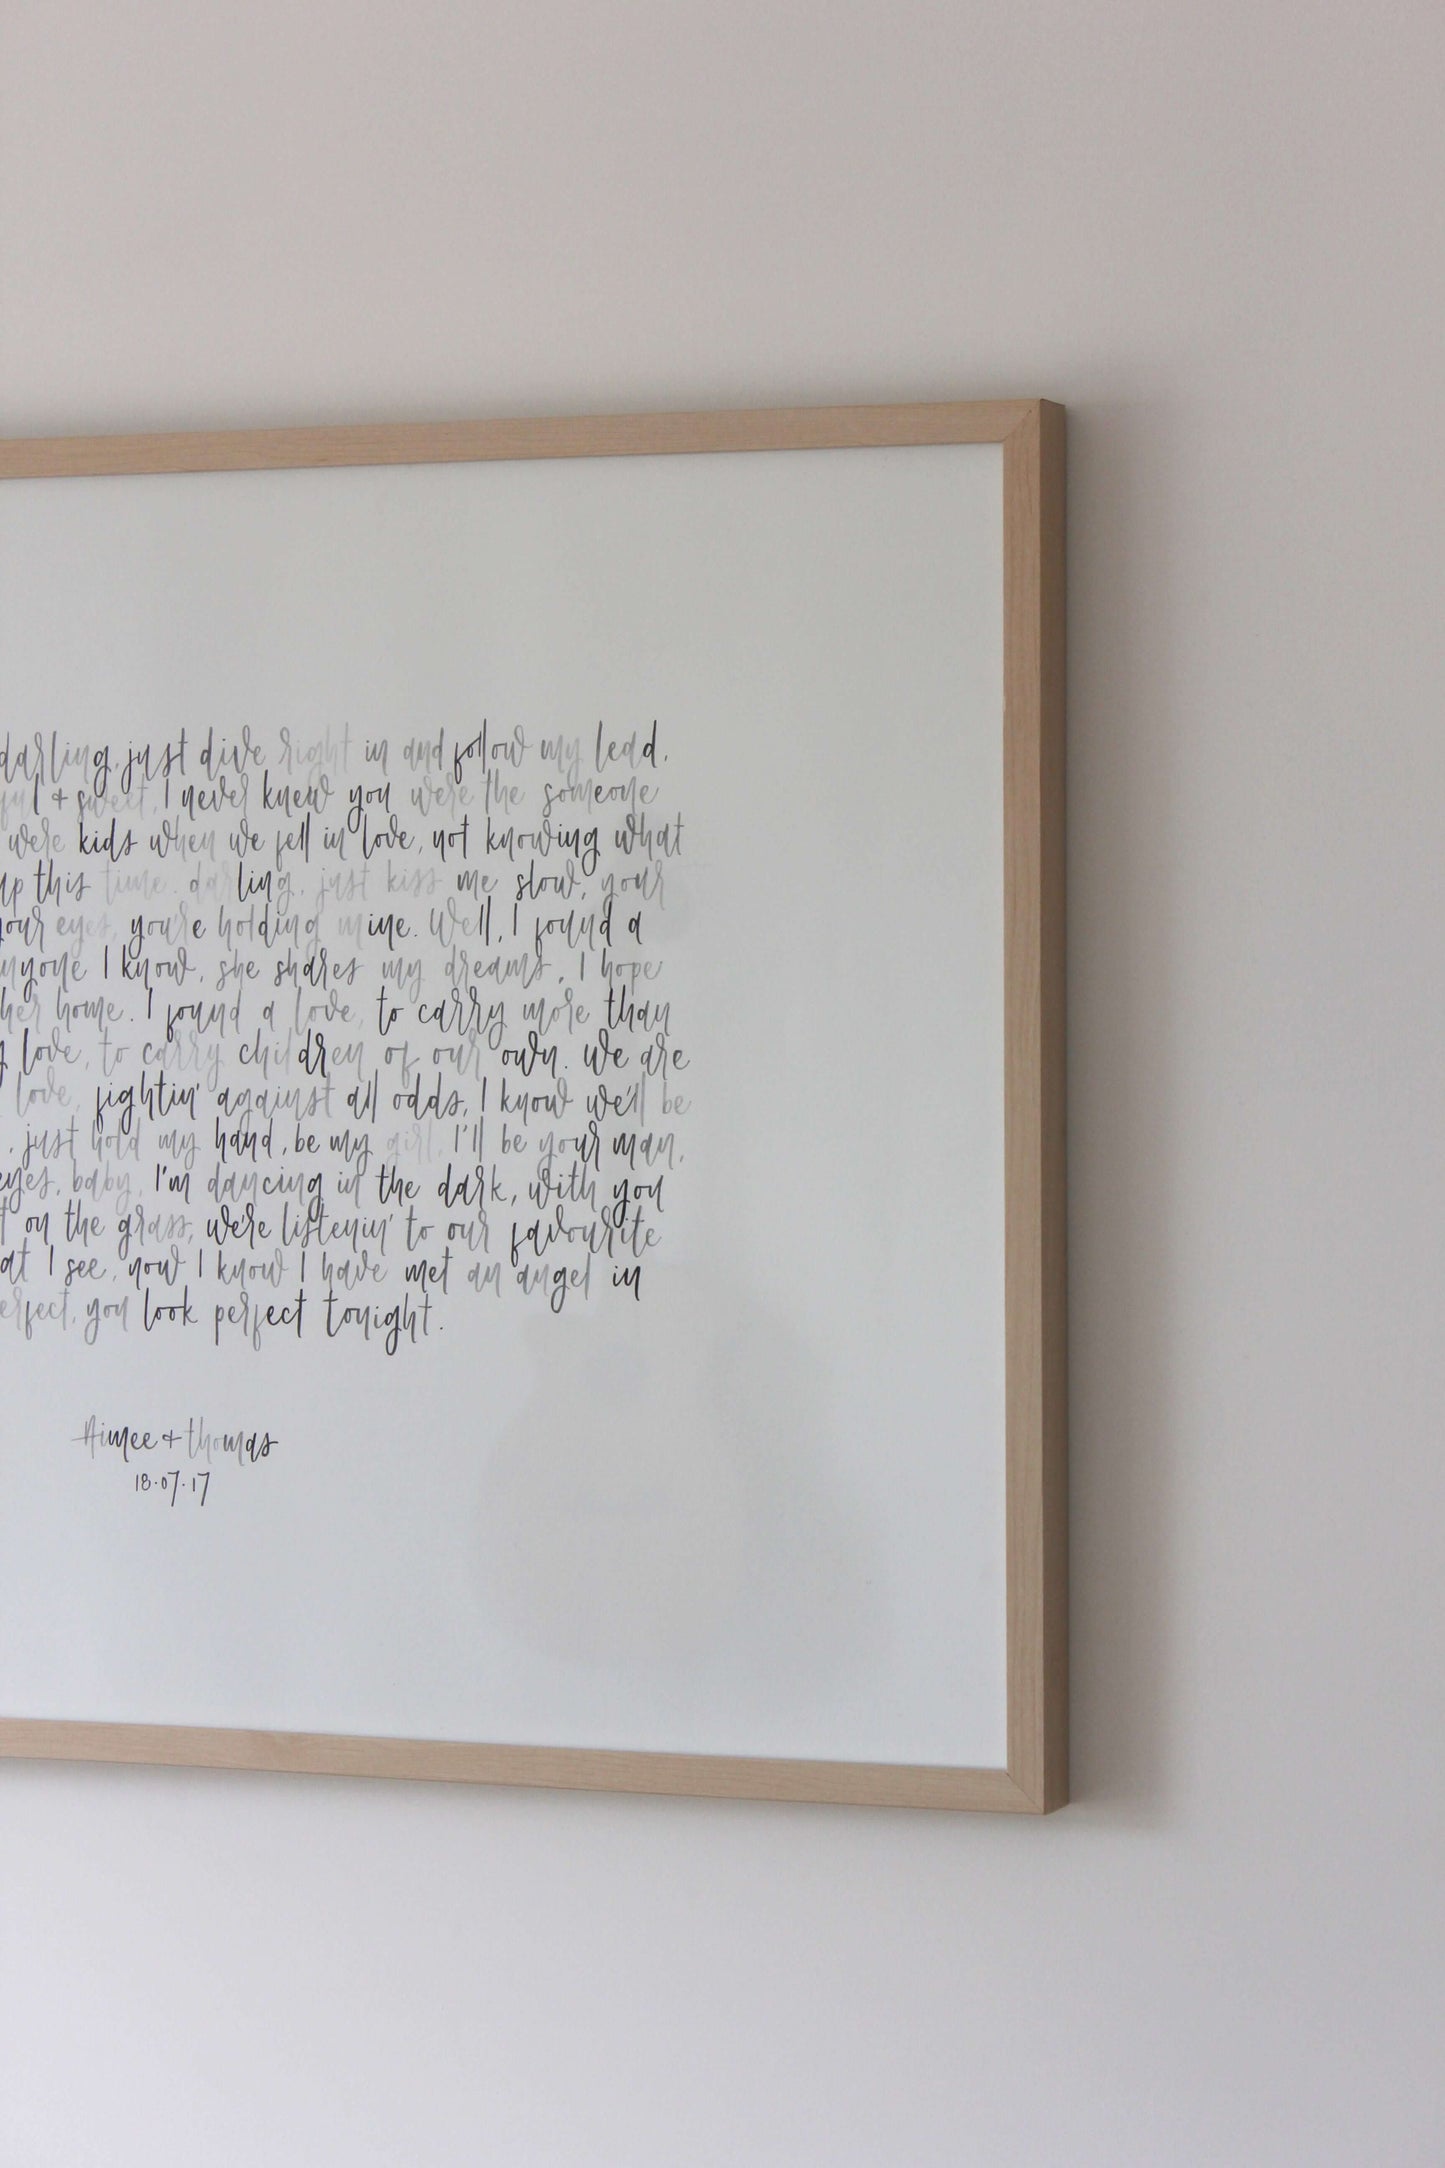 darling, just dive right in and follow my lead.
+ sweet, I never knew you were the someone
were kids when we fell in love, not knowing what
up this time. darling, just kiss me slow, your
your eyes, you're holding mine. Well, I found a
I know, she shares my dreams, I hope
her home. I found a love, to carry more than
love, to carry children of our own. We are
love, fightin' against all odds, I know we'll be
, just hold my hand, be my girl, I'll be your man,
eyes, baby, I'm dancing in the dark, with you
on the grass, we're listenin' to our favourite
at I see, now I know I have met an angel in
erfect, you look perfect tonight.
Aimee + Thomas
18.07.17